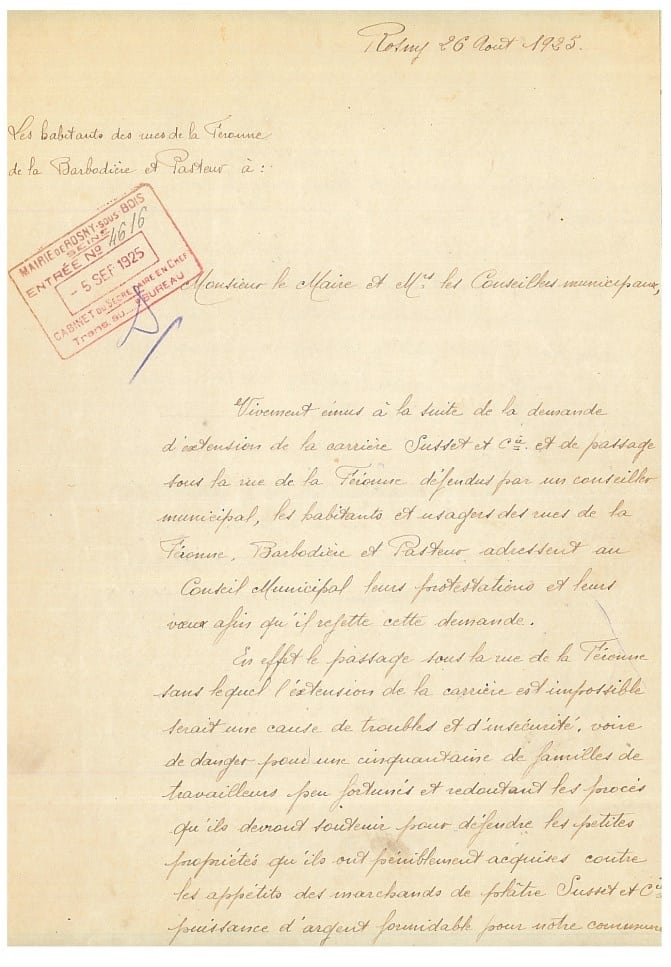 Rosny 26 Août 1925.
Les habitants des rues de la Féronne
de la Barbodière et Pasteur à :
MAIRIE DE ROSNY-SOUS-BOIS
SEINE
ENTRÉE No 4616
- 5 SEP 1925
CABINET DU SECRÉTAIRE EN CHEF
Trans. au ... BUREAU
Monsieur le Maire et Mrs les Conseillers municipaux,
Vivement émus à la suite de la demande
d'extension de la carrière Susset et Cie et de passage
sous la rue de la Féronne défendus par un conseiller
municipal, les habitants et usagers des rues de la
Féronne, Barbodière et Pasteur adressent au
Conseil Municipal leurs protestations et leurs
vœux afin qu'il rejette cette demande.
En effet le passage sous la rue de la Féronne
sans lequel l'extension de la carrière est impossible
serait une cause de troubles et d'insécurité, voire
de danger pour une cinquantaine de familles de
travailleurs peu fortunés et redoutant les procès
qu'ils devront soutenir pour défendre les petites
propriétés qu'ils ont péniblement acquises contre
les appétits des marchands de plâtre Susset et Cie
puissance d'argent formidable pour notre commune